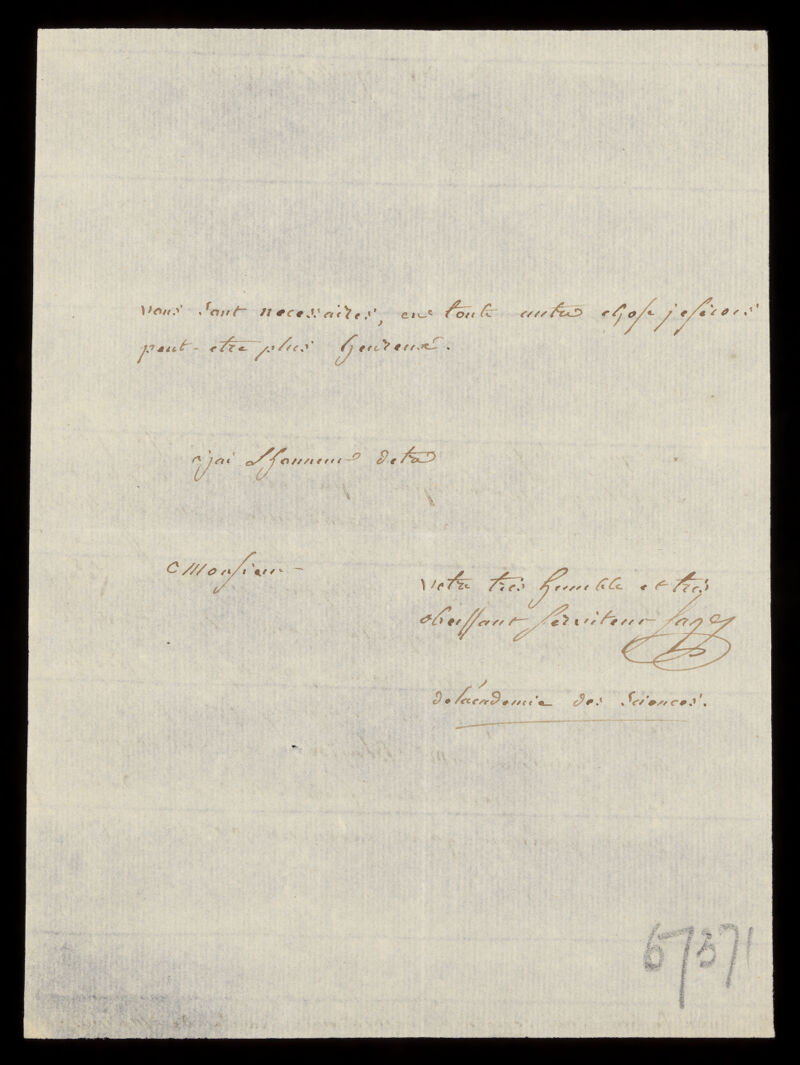 vous sont necessaires, en toute autre chose je serois
peut-etre plus heureux.
j'ai Lhonneur detre
Monsieur
votre tres humble et tres
obeissant serviteur Sage
de l'academie des Sciences.
67371